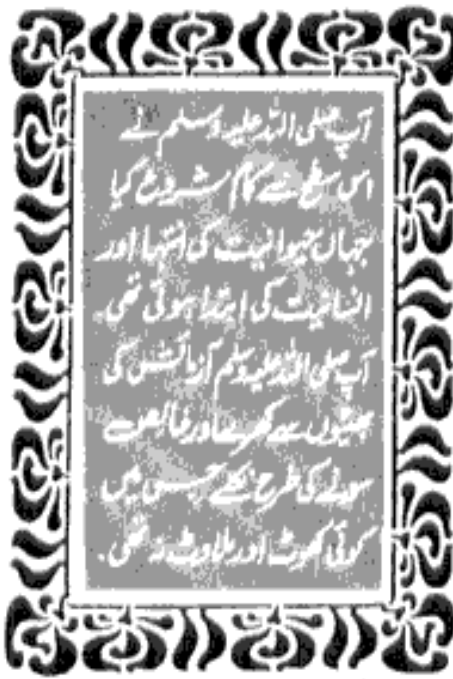 آپ صلی اللہ علیہ وسلم نے
اس سطح سے کام شروع کیا
جہاں حیوانیت کی انتہا اور
انسانیت کی ابتدا ہوتی تھی۔
آپ صلی اللہ علیہ وسلم آزمائش کی
بھٹیوں سے کھرے اور خالص
سونے کی طرح نکلے جس میں
کوئی کھوٹ اور ملاوٹ نہ تھی۔